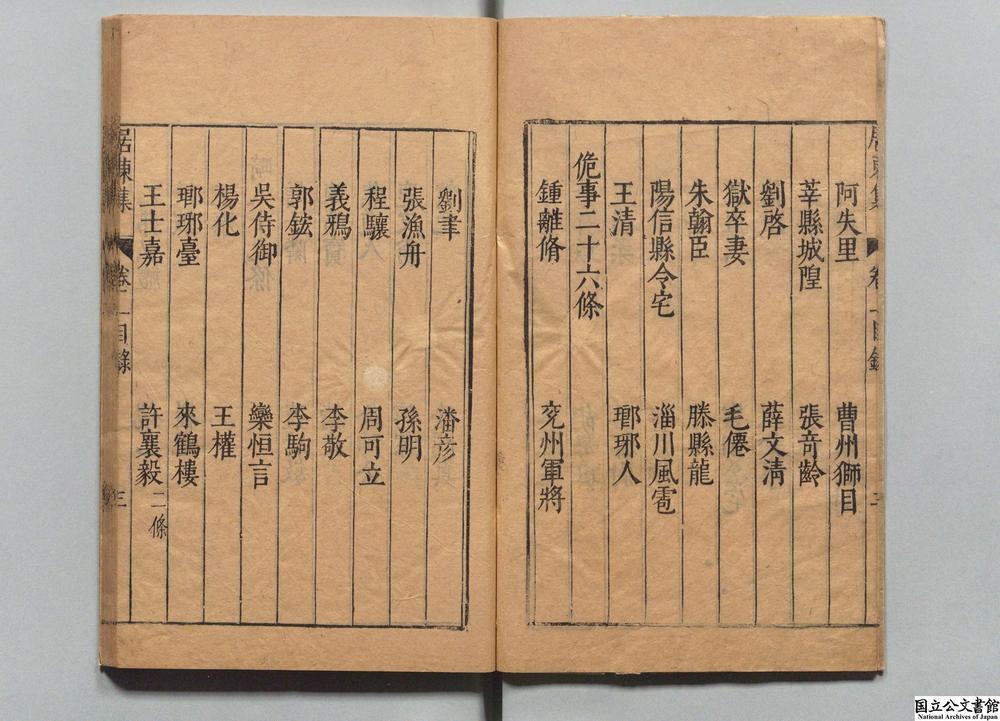 居東集 卷一目錄
阿失里 曹州獅目
莘縣城隍 張竒齡
劉啓 薛文淸
獄卒妻 毛僊
朱翰臣 滕縣龍
陽信縣令宅 淄川風雹
王清 瑯琊人
佹事二十六條
鍾離脩 兖州軍將
劉聿 潘彦
張漁舟 孫明
程驤 周可立
義鴉 李敬
郭鋐 李駒
吳侍御 欒恒言
楊化 王權
瑯琊臺 來鶴樓
王士嘉 許襄毅 二條
居東集 卷一目錄 三
国立公文書館
National Archives of Japan